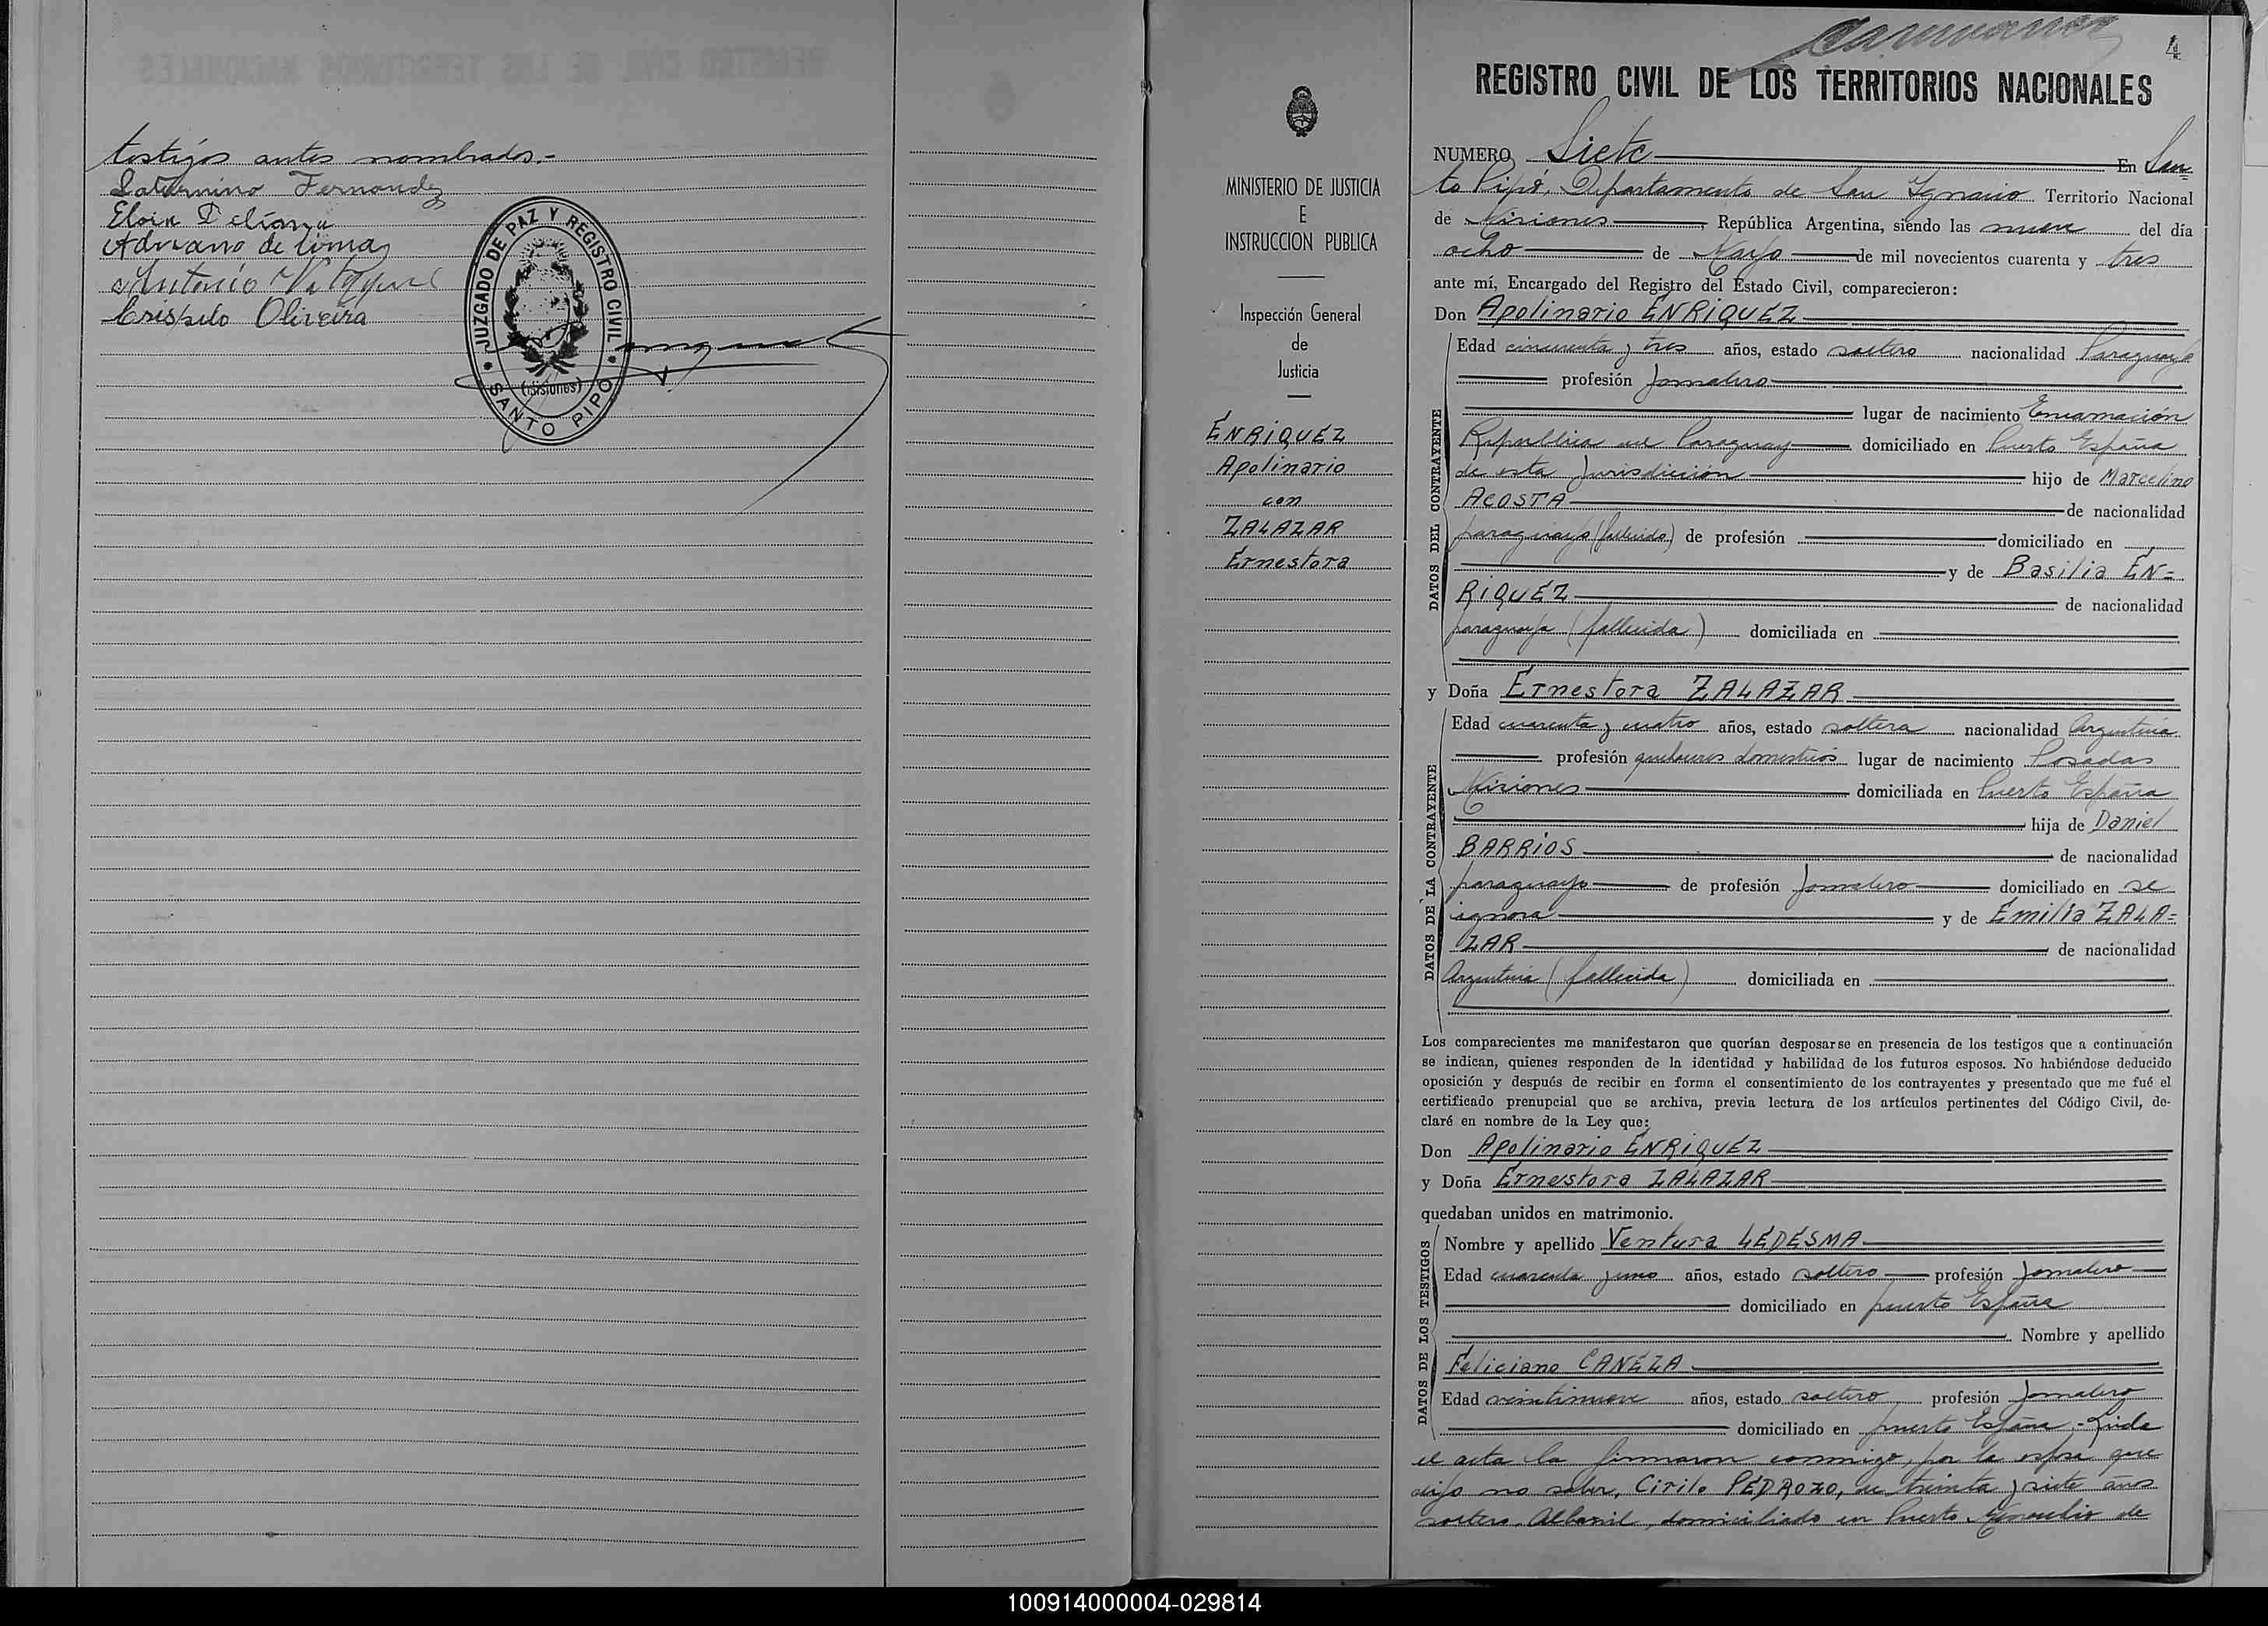 testigos antes nombrados.-
Saturnino Fernandez
Eloir
Adriano de lima
Antonio
Crispulo Oliveira
JUZGADO DE PAZ Y REGISTRO CIVIL
(Misiones)
SANTO PIPO
MINISTERIO DE JUSTICIA
E
INSTRUCCION PUBLICA
Inspección General
de
Justicia
ENRIQUEZ
Apolinario
con
ZALAZAR
Ernestora
4
REGISTRO CIVIL DE LOS TERRITORIOS NACIONALES
NUMERO Siete En San
to Pipó, Departamento de San Ignacio Territorio Nacional
de Misiones, República Argentina, siendo las nueve del día
ocho de Mayo de mil novecientos cuarenta y tres
ante mí, Encargado del Registro del Estado Civil, comparecieron:
Don Apolinario ENRIQUEZ
DATOS DEL CONTRAYENTE
Edad cincuenta y tres años, estado soltero nacionalidad Paraguaya
profesión Jornalero
lugar de nacimiento Encarnación
República del Paraguay domiciliado en Puerto España
de esta Jurisdicción hijo de Marcelino
ACOSTA de nacionalidad
paraguayo (fallecido) de profesión domiciliado en
y de Basilia EN=
RIQUEZ de nacionalidad
paraguaya (fallecida) domiciliada en
y Doña Ernestora ZALAZAR
DATOS DE LA CONTRAYENTE
Edad cuarenta y cuatro años, estado soltera nacionalidad Argentina
profesión quehaceres domesticos lugar de nacimiento Posadas
Misiones domiciliada en Puerto España
hija de Daniel
BARRIOS de nacionalidad
paraguayo de profesión Jornalero domiciliado en se
ignora y de Emilia ZALA=
ZAR de nacionalidad
Argentina (fallecida) domiciliada en
Los comparecientes me manifestaron que querían desposarse en presencia de los testigos que a continuación
se indican, quienes responden de la identidad y habilidad de los futuros esposos. No habiéndose deducido
oposición y después de recibir en forma el consentimiento de los contrayentes y presentado que me fué el
certificado prenupcial que se archiva, previa lectura de los artículos pertinentes del Código Civil, de-
claré en nombre de la Ley que:
Don Apolinario ENRIQUEZ
y Doña Ernestora ZALAZAR
quedaban unidos en matrimonio.
DATOS DE LOS TESTIGOS
Nombre y apellido Ventura LEDESMA
Edad cuarenta y uno años, estado soltero profesión Jornalero
domiciliado en puerto España
Nombre y apellido
Feliciano CANEZA
Edad veintinueve años, estado soltero profesión Jornalero
domiciliado en puerto España.- Leida
el acta la firmaron conmigo, por la esposa que
dijo no saber, Cirilo PEDROZO, de treinta y siete años
soltero, Albañil, domiciliado en Puerto de
100914000004-029814